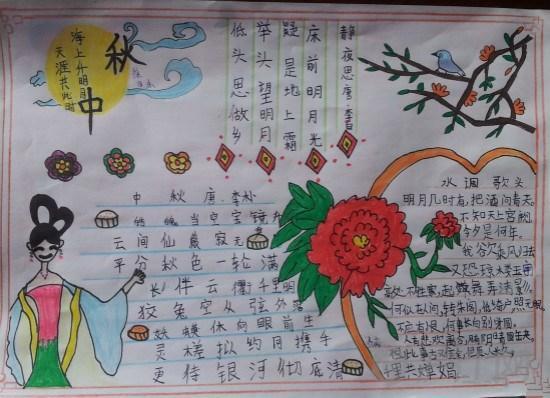 秋
中
海上升明月
天涯共此时
静夜思唐李白
床前明月光
疑是地上霜
举头望明月
低头思做乡
中秋唐.李朴
当空宝镜升
云间仙籁寂无
平分秋色一轮满
长伴云衢千里明
狡兔空从弦外落
休向眼前生
灵槎拟约月携手
更待银河彻底清
水调歌头
明月几时有,把酒问青天。
不知天上宫
今夕是何年。
我欲乘风归去
又恐琼楼玉宇
高处不胜寒,起舞弄清影,
何似在人间,转朱阁,低绮户,照无眠
不应有恨,何事长向别时圆。
人有悲欢离合,月有阴晴圆缺,
此事古难全,但愿人长久,
千里共婵娟。